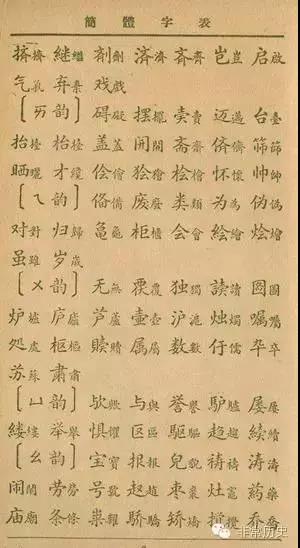 簡體字表
挤擠 継繼 剤劑 済濟 斉齊 岂豈 启啟
气氣 弃棄 戏戲
〔ㄞ韵〕 碍礙 摆擺 卖賣 迈邁 台臺
抬擡 枱檯 盖蓋 開 斋齋 侪儕 筛篩
晒曬 才纔 侩儈 狯獪 桧檜 怀懷 帅帥
〔ㄟ韵〕 俻備 废廢 类類 为為 伪偽
对對 归歸 亀龜 柜櫃 会會 絵繪 烩燴
虽雖 岁歲
〔ㄨ韵〕 无無 覄覆 独獨 読讀 図圖
炉爐 庐廬 芦蘆 壶壺 沪滬 烛燭 嘱囑
処處 枢樞 贖 属屬 数數 儒 卆卒
苏蘇 肃肅
〔ㄩ韵〕 欤歟 与與 誉譽 驴驢 屡屢
缕縷 举舉 惧懼 区區 駆驅 趋趨 続續
〔ㄠ韵〕 宝寶 报報 皃貌 祷禱 涛濤
闹鬧 劳勞 号號 赵趙 枣棗 灶竈 药藥
庙廟 条條 粜糶 骄驕 矫矯 搅攪 乔喬
非常历史